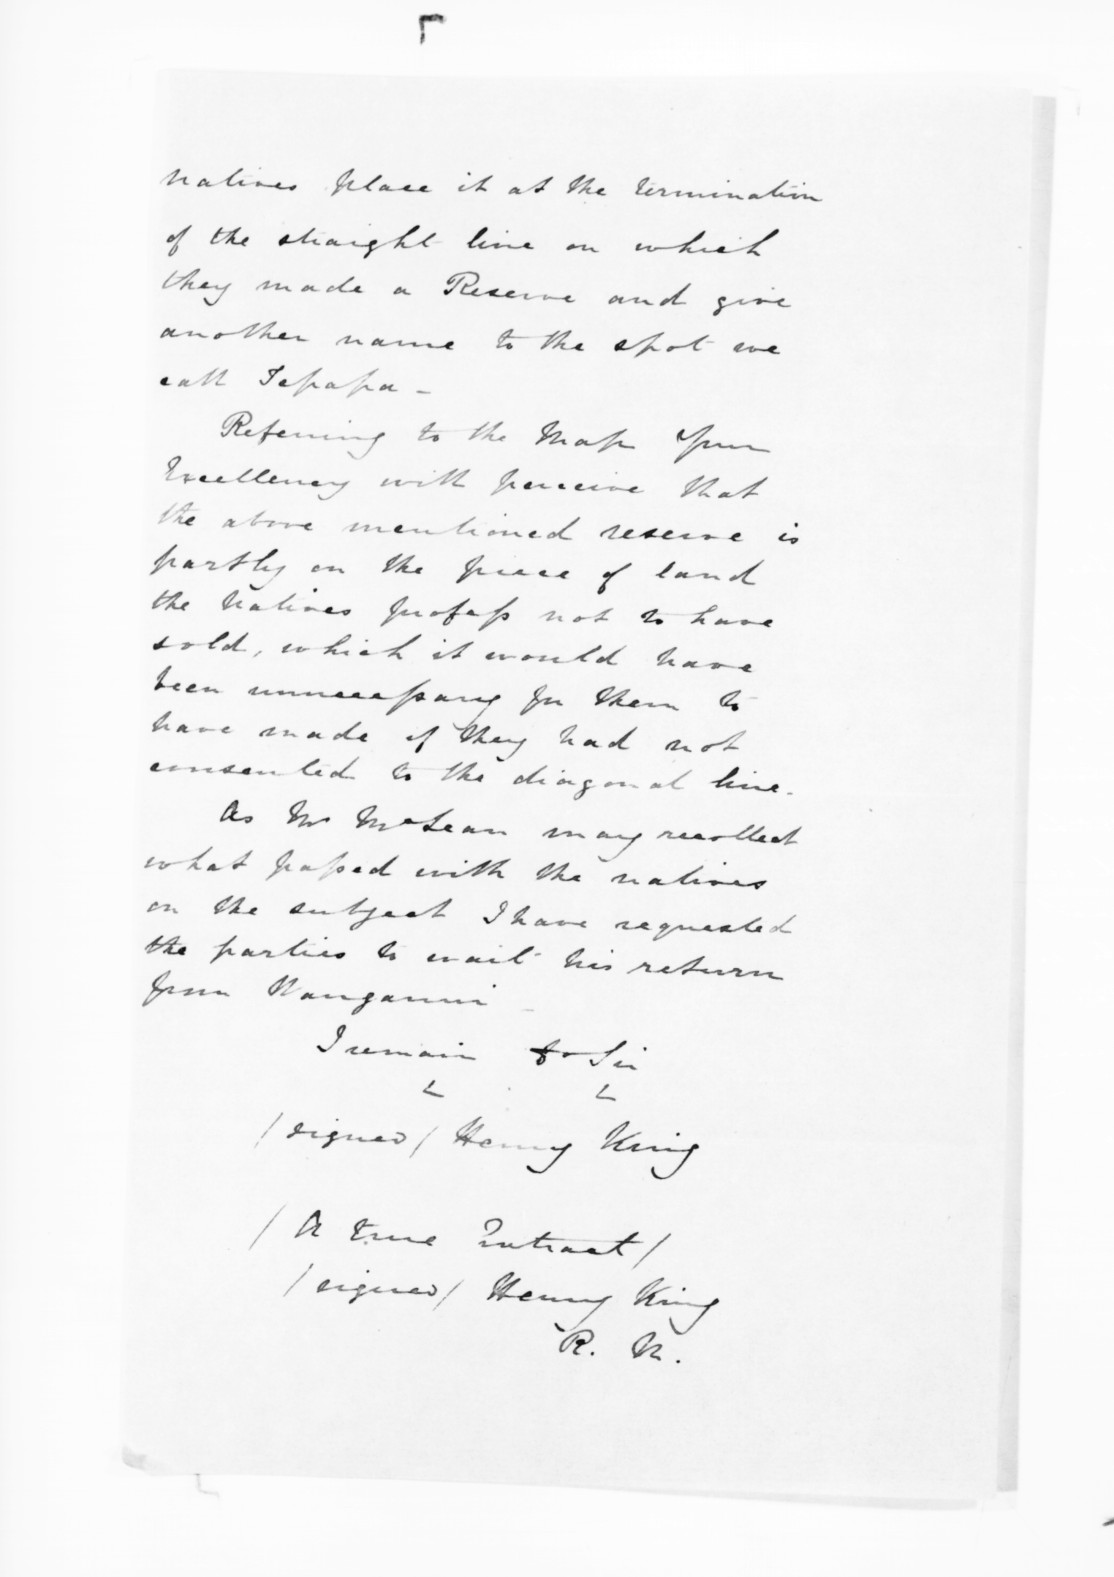 natives place it at the termination
of the straight line on which
they made a Reserve and give
another name to the spot we
call Tepapa -
Referring to the Map Your
Excellency will perceive that
the above mentioned reserve is
partly on the piece of land
the Natives profess not to have
sold, which it would have
been unnecessary for them to
have made if they had not
consented to the diagonal line.
As Mr McLean may recollect
what passed with the natives
on the subject I have requested
the parties to wait his return
from Wanganui -
I remain &c Sir
/signed/ Henry King
/ A true Extract /
/signed/ Henry King
R. N.